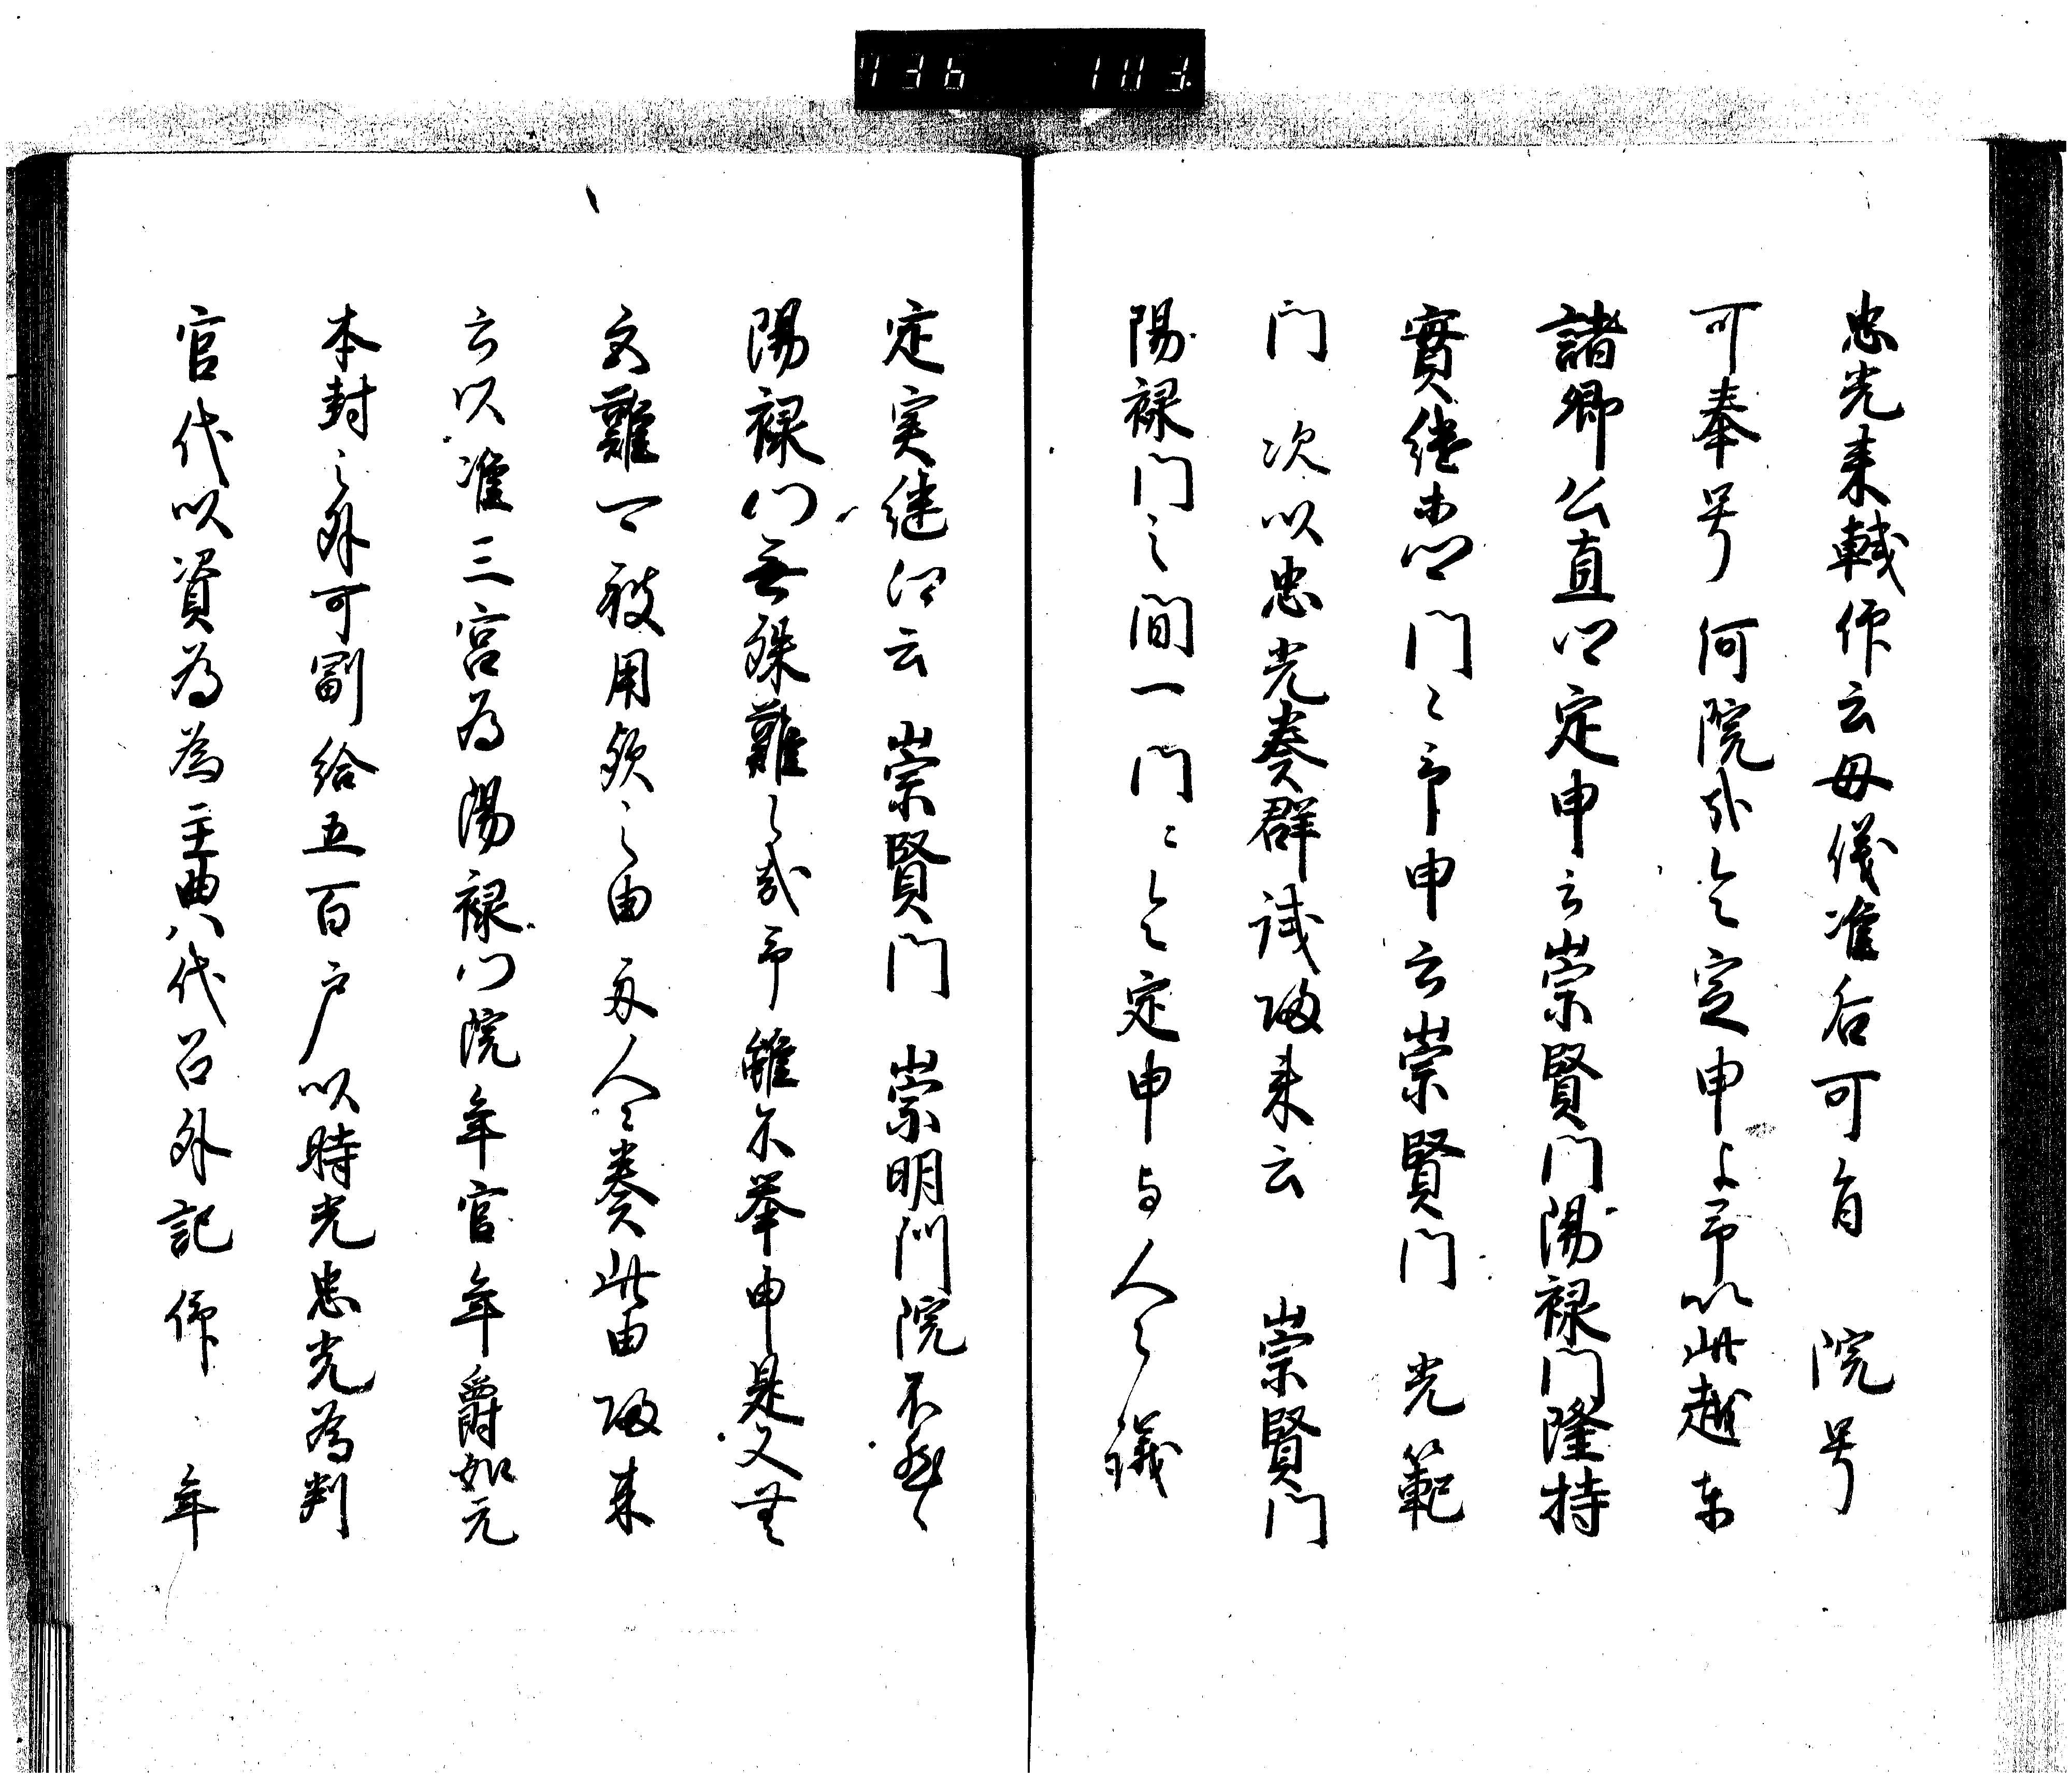 忠光来軾仰云母儀准后可有 院号
可奉号何院哉令定申よ予以此趣示
諸卿公直卿定申云崇賢門陽禄門隆持
實継卿門々予申云崇賢門 光範
門 次以忠光奏群議帰来云 崇賢門
陽禄門之間一門々令定申与人々議
定実継卿云 崇賢門 崇明門院不快
陽禄門無殊難之哉予雖不挙申是又無
文難可被用歟之由各人々奏此由帰来
云以准三宮為陽禄門院年官年爵如元
本封之外可副給五百戸以時光忠光為判
官代以資為為主典代召外記仰 年
736 103